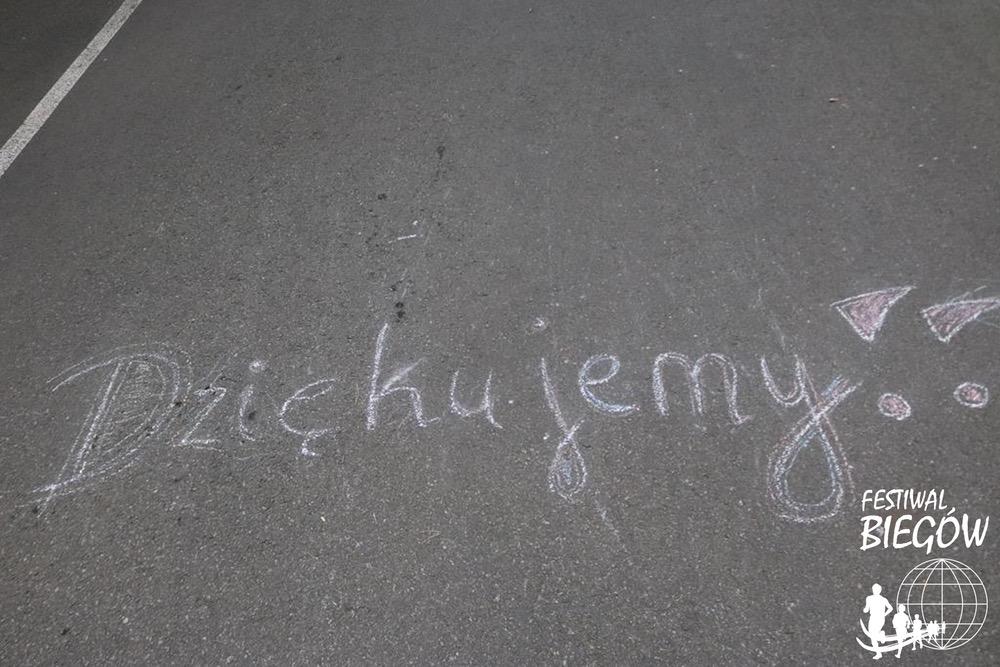 Dziękujemy!!
FESTIWAL
BIEGÓW